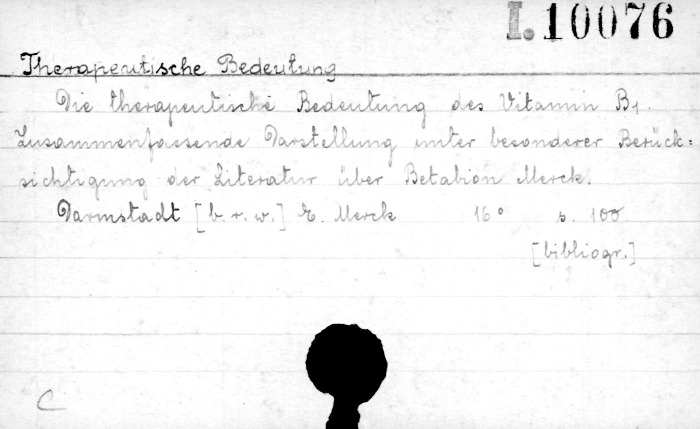 I.10076
Therapeutische Bedeutung
Die therapeutische Bedeutung des Vitamin B1.
Zusammenfassende Darstellung unter besonderer Berück=
sichtigung der Literatur über Betabion Merck.
Darmstadt [b. r. w.] E. Merck 16° s. 100
[bibliogr.]
C